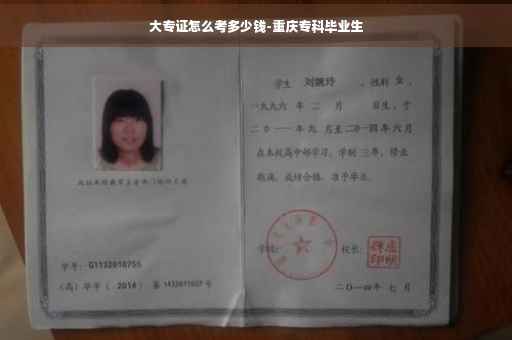 大专证怎么考多少钱-重庆专科毕业生
学生 刘婉玲 ，性别 女 ，
一九九六 年 二 月 日生，于
二〇一一 年 九 月至 二〇一四 年 六 月
在本校高中部学习，学制 三 年，修业
期满，成绩合格，准予毕业。
学号： G1132010755
（高）毕字（ 2014 ）第 号
学校： 校长：
二〇一四年 七 月